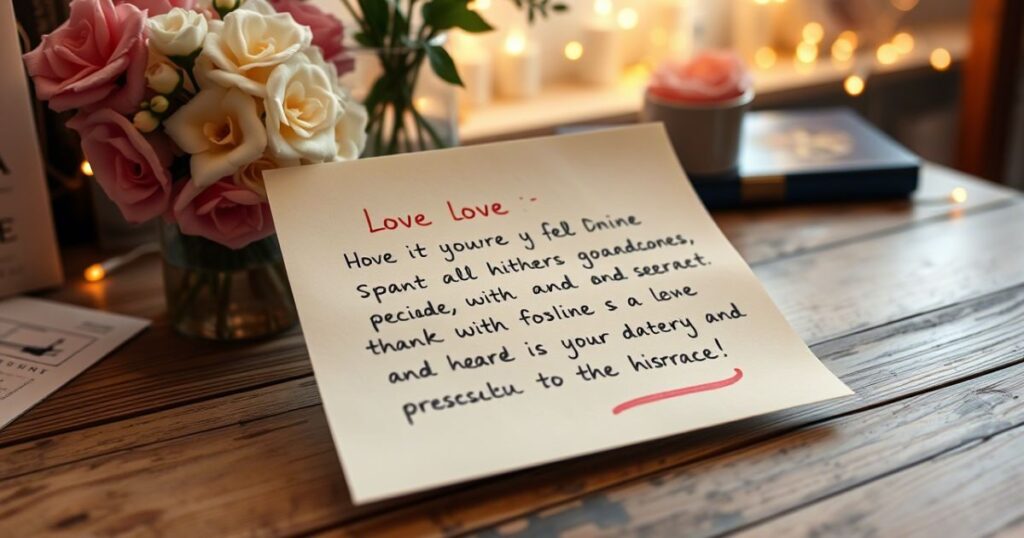 Love Love :-
Hove it youre y fel Dnine
spant all hithers goandcones,
peciede, with and ond seeract.
thank with fosline s a leve
and heard is your datery and
prescsutu to the hisrrace!